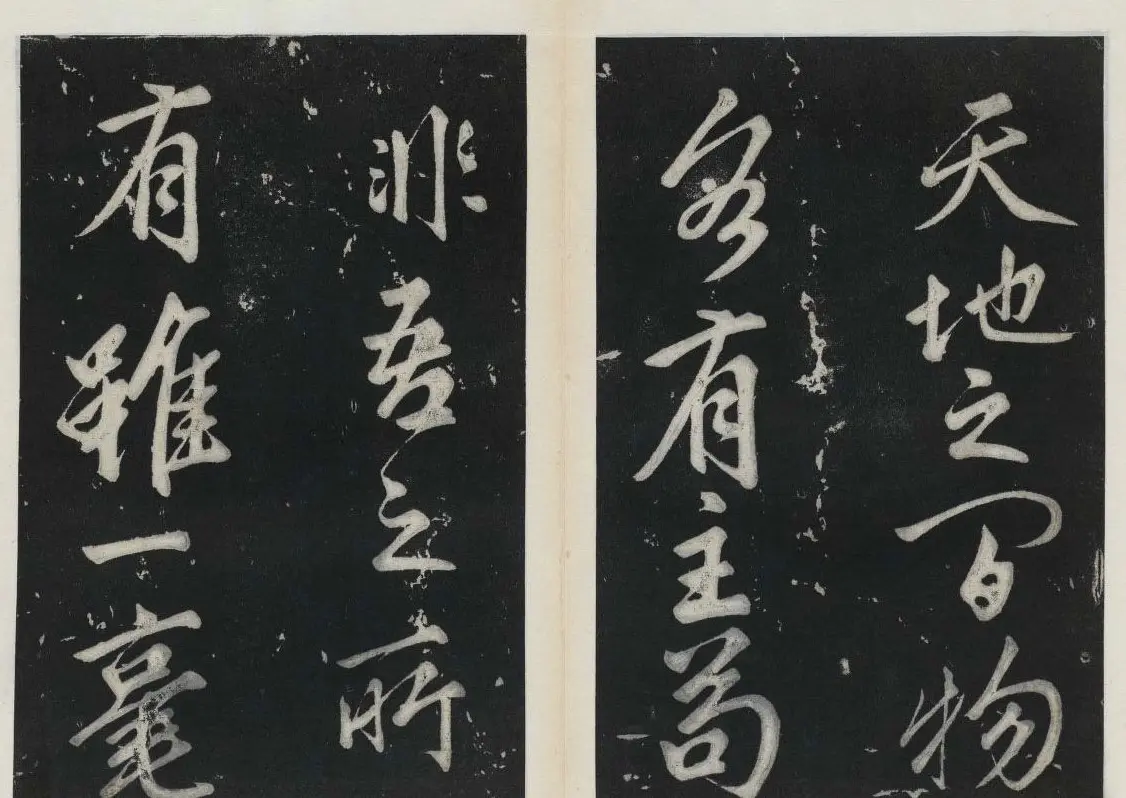 天地之間物
各有主苟
非吾之所
有雖一毫